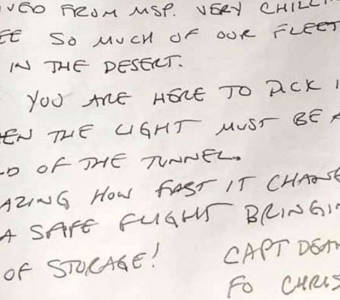 VED FROM MSP. VERY CHILLI
EE SO MUCH OF OUR FLEET
IN THE DESERT.
YOU ARE HERE TO PICK I
EN THE LIGHT MUST BE A
D OF THE TUNNEL.
AZING HOW FAST IT CHANGE
A SAFE FLIGHT BRINGIN
OF STORAGE!
CAPT DEAN
FO CHRIS